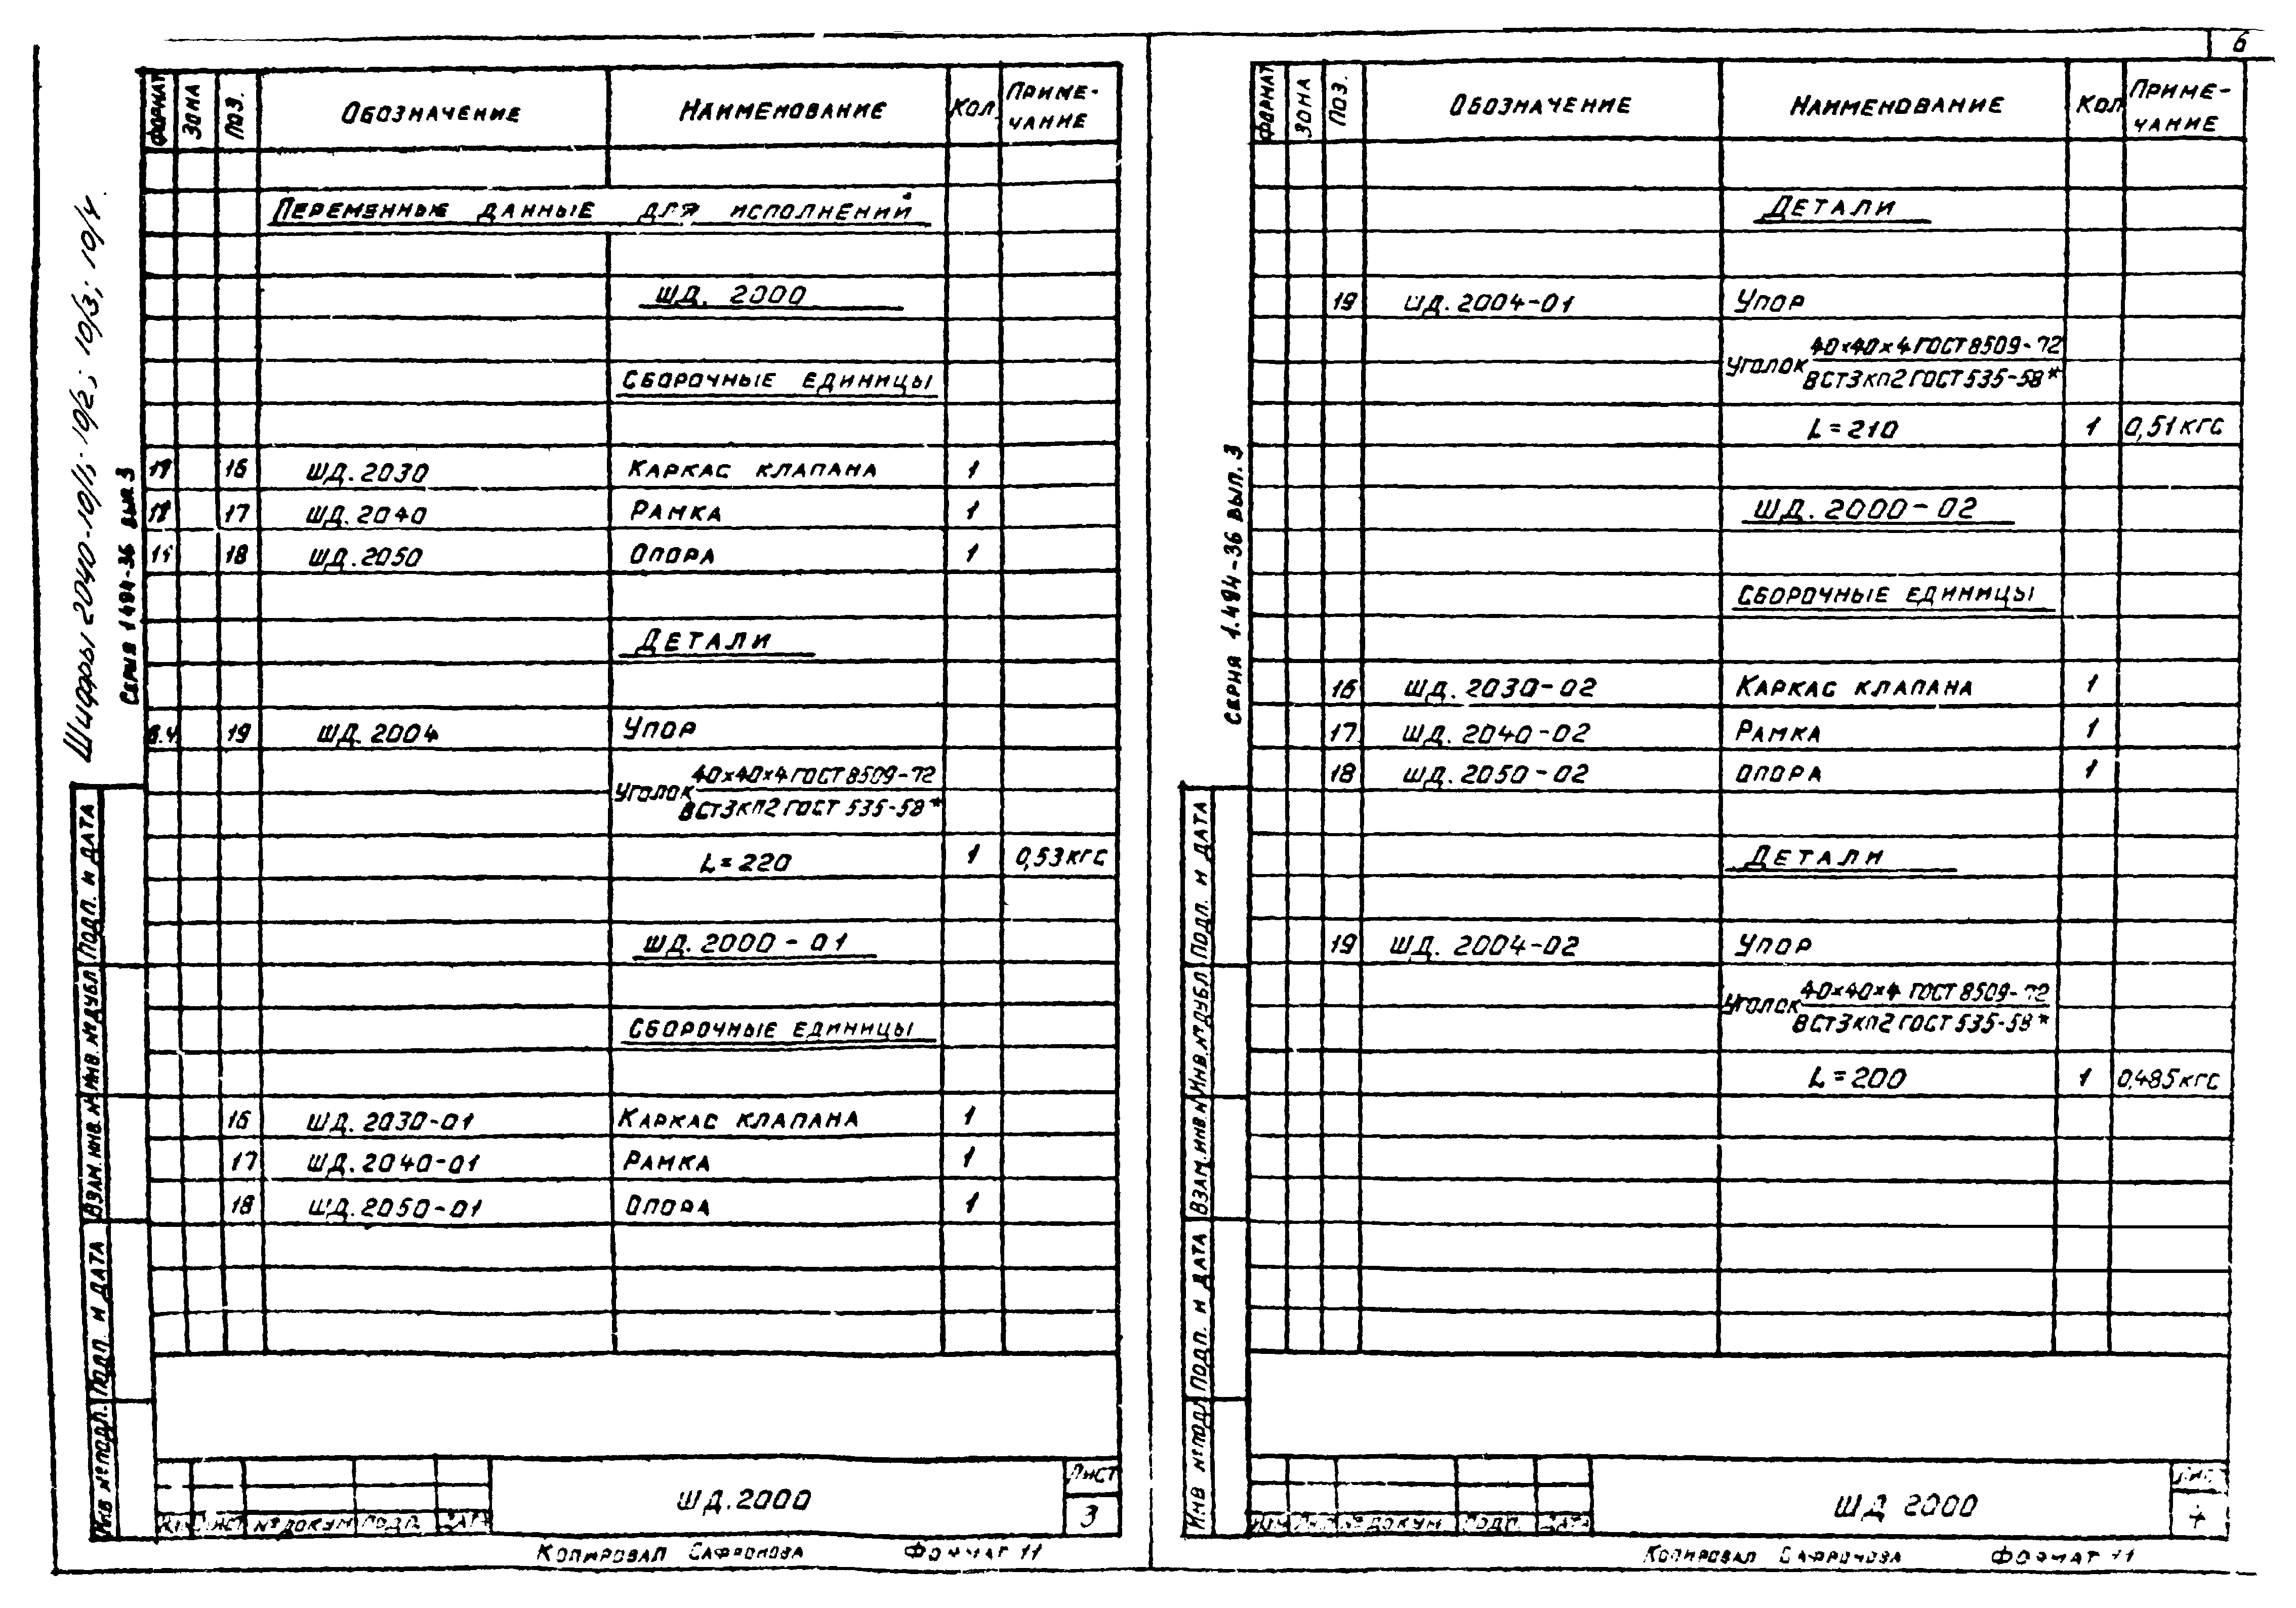 6
Шифры 2040-10/1; 10/2; 10/3; 10/4.
Серия 1494-36 вып. 3
Формат Зона Поз. Обозначение Наименование Кол. Приме-
чание
Переменные данные для исполнений
ШД. 2000
Сборочные единицы
16 ШД.2030 Каркас клапана 1
17 ШД.2040 Рамка 1
18 ШД.2050 Опора 1
Детали
Б.Ч. 19 ШД.2004 Упор
40×40×4 ГОСТ 8509-72
Уголок
ВСт3кп2 ГОСТ 535-58*
L=220 1 0,53 кгс
ШД.2000-01
Сборочные единицы
16 ШД.2030-01 Каркас клапана 1
17 ШД.2040-01 Рамка 1
18 ШД.2050-01 Опора 1
Подп. и дата
Инв. № дубл
Взам. инв. №
Подп. и дата
Инв № подл.
Лист
ШД.2000
3
Лист № докум Подп. Дата
Копировал Сафронова Формат 11
Серия 1.494-36 вып. 3
Формат Зона Поз. Обозначение Наименование Кол Приме-
чание
Детали
19 ШД.2004-01 Упор
40×40×4 ГОСТ 8509-72
Уголок
ВСт3кп2 ГОСТ 535-58*
L=210 1 0,51 кгс
ШД.2000-02
Сборочные единицы
16 ШД.2030-02 Каркас клапана 1
17 ШД.2040-02 Рамка 1
18 ШД.2050-02 Опора 1
Детали
19 ШД.2004-02 Упор
40×40×4 ГОСТ 8509-72
Уголок
ВСт3кп2 ГОСТ 535-58*
L=200 1 0,485 кгс
Подп. и дата
Инв. № дубл
Взам. инв. №
Подп. и дата
Инв № подл
Лист
ШД 2000
4
№ докум Подп. Дата
Копировал Сафронова Формат 11